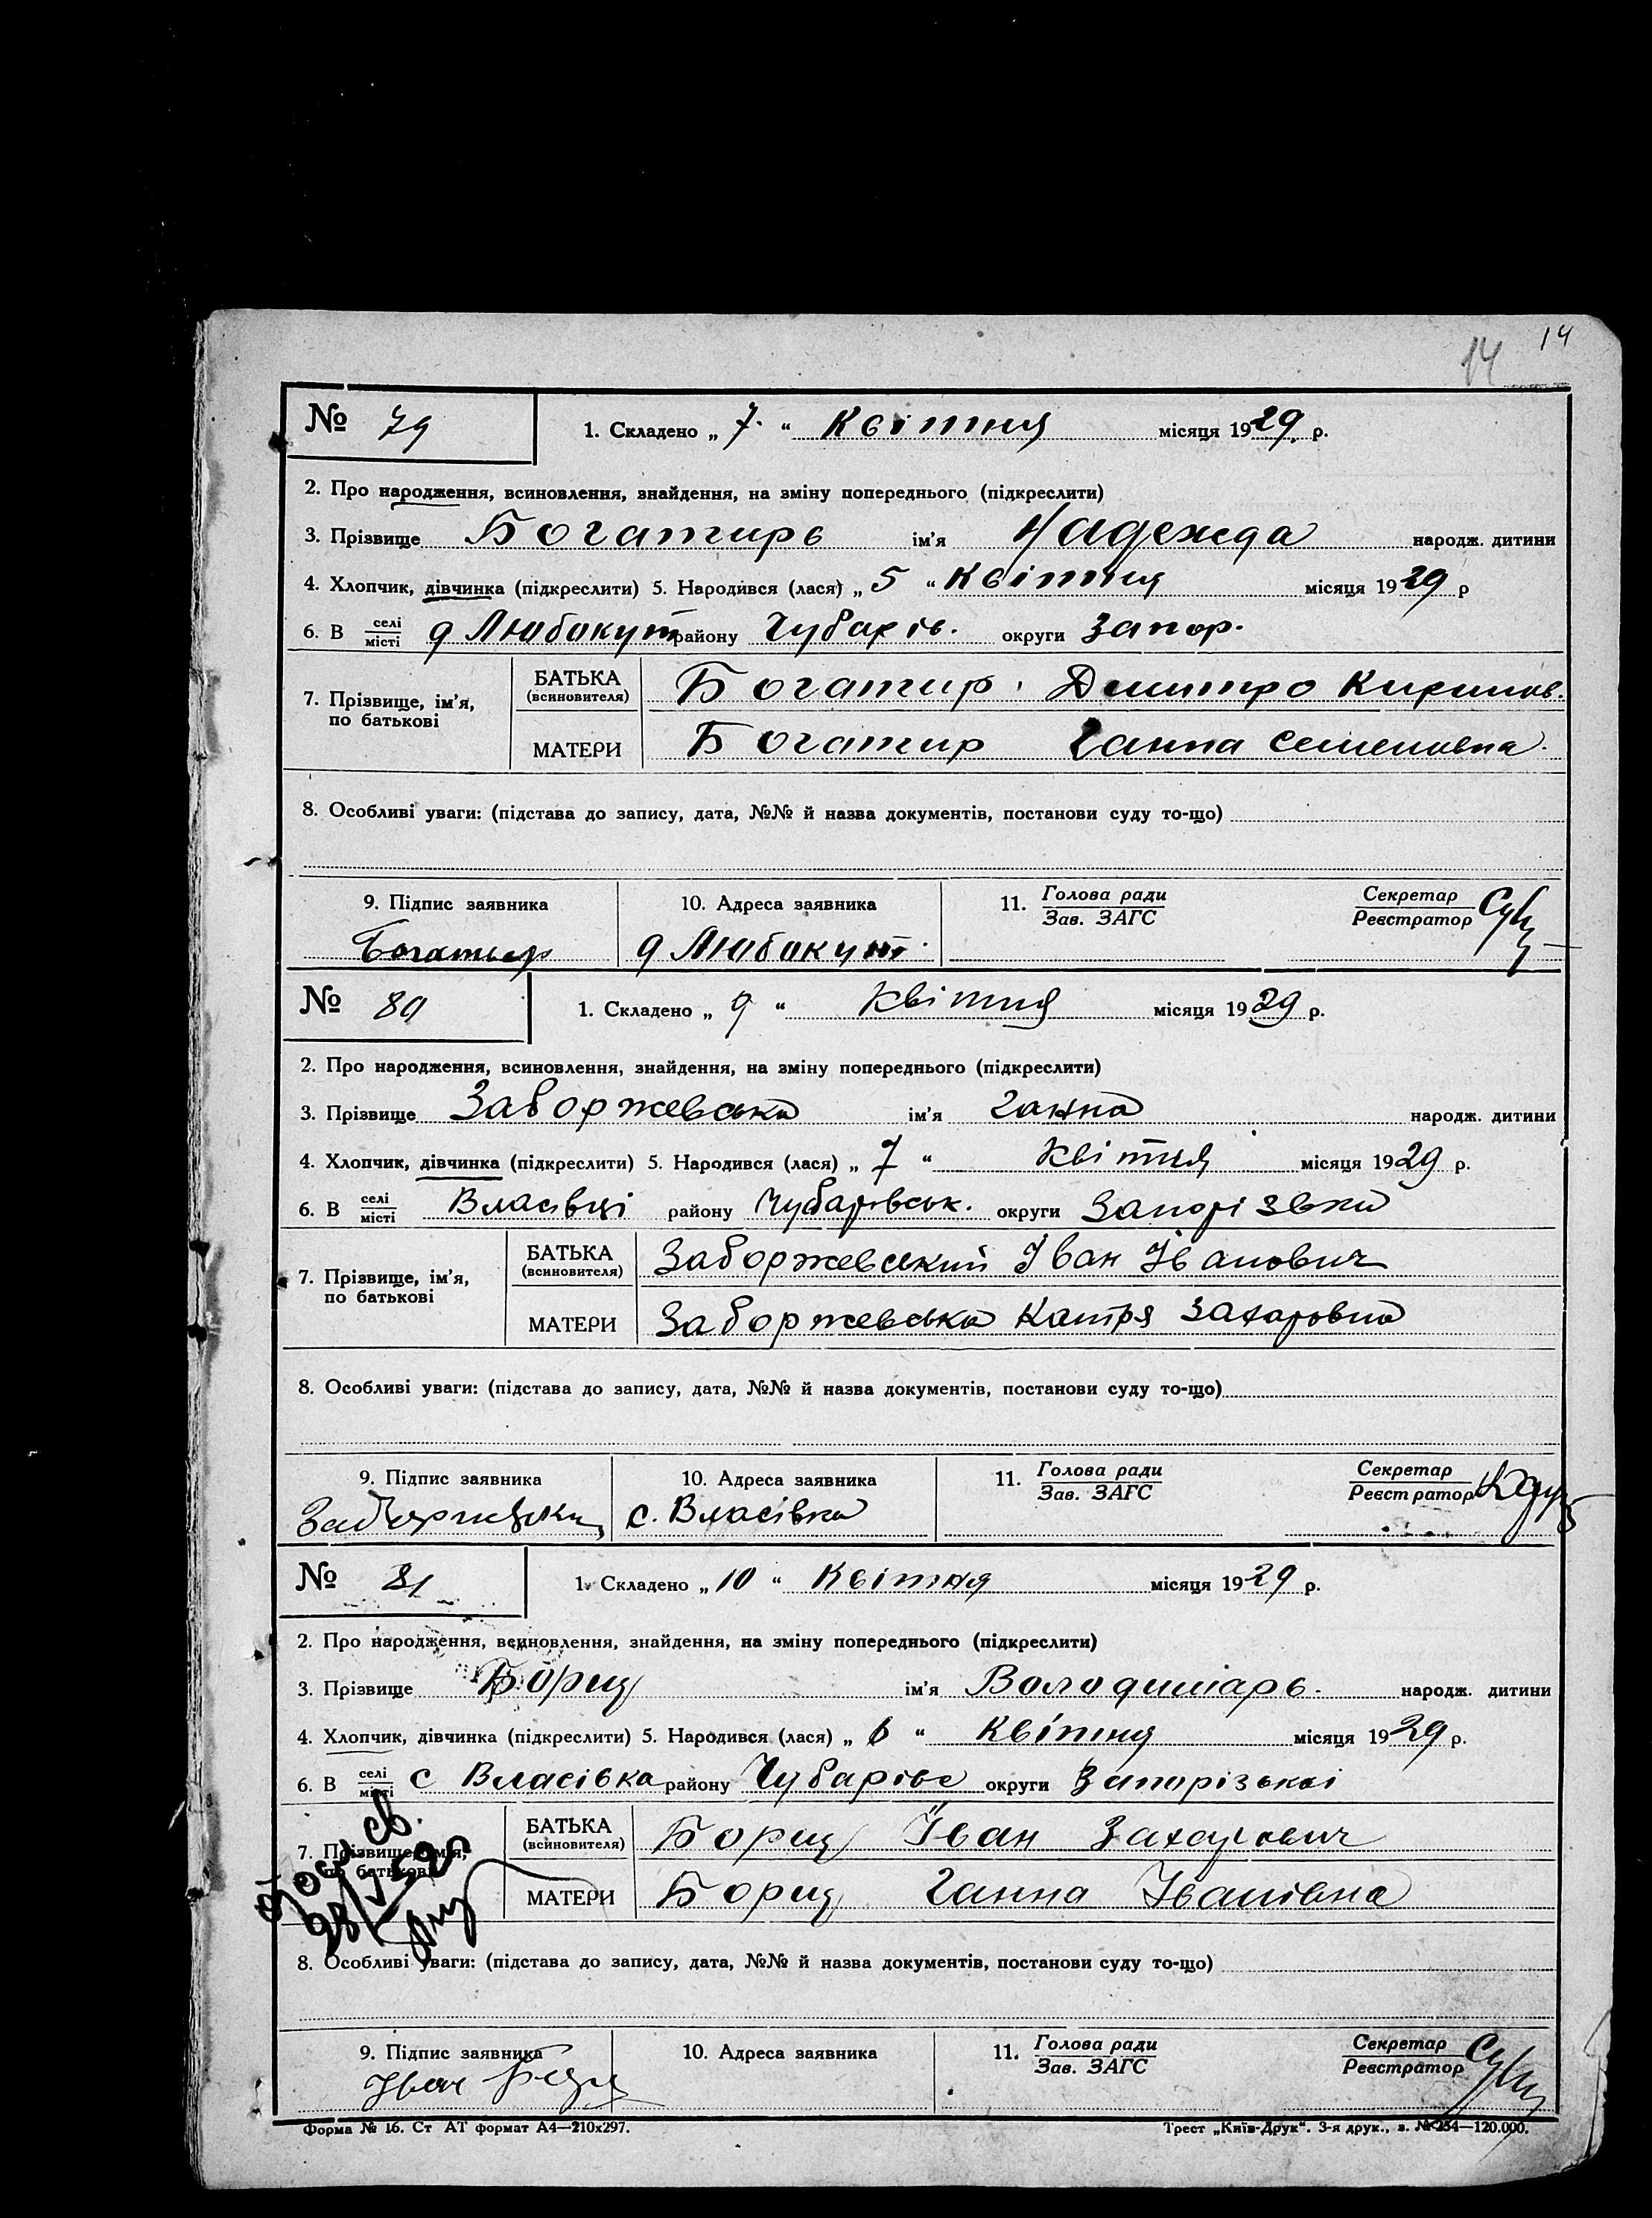 14
14
№ 79
1. Складено „ 7 “ Квітня місяця 1929 р.
2. Про народження, всиновлення, знайдення, на зміну попереднього (підкреслити)
3. Прізвище Богатирь ім'я Надежда народж. дитини
4. Хлопчик, дівчинка (підкреслити) 5. Народився (лася) „ 5 “ Квітня місяця 1929 р
6. В селі місті д Любакут району Чубарів. округи Запор.
7. Прізвище, ім'я, по батькові
БАТЬКА (всиновителя) Богатир Дмитро Кирилов.
МАТЕРИ Богатир Ганна Семеновна
8. Особливі уваги: (підстава до запису, дата, №№ й назва документів, постанови суду то-що)
9. Підпис заявника 10. Адреса заявника 11. Голова ради Зав. ЗАГС Секретар Реєстратор
Богатыр д Любакут
№ 80
1. Складено „ 9 “ Квітня місяця 1929 р.
2. Про народження, всиновлення, знайдення, на зміну попереднього (підкреслити)
3. Прізвище Заборжевська ім'я Ганна народж. дитини
4. Хлопчик, дівчинка (підкреслити) 5. Народився (лася) „ 7 “ Квітня місяця 1929 р.
6. В селі місті Власівці району Чубарівськ. округи Запорізька
7. Прізвище, ім'я, по батькові
БАТЬКА (всиновителя) Заборжевський Іван Іванович
МАТЕРИ Заборжевська Катря Захаровна
8. Особливі уваги: (підстава до запису, дата, №№ й назва документів, постанови суду то-що)
9. Підпис заявника 10. Адреса заявника 11. Голова ради Зав. ЗАГС Секретар Реєстратор
с. Власівка
№ 81
1. Складено „ 10 “ Квітня місяця 1929 р.
2. Про народження, всиновлення, знайдення, на зміну попереднього (підкреслити)
3. Прізвище Борщ ім'я Володиміарь народж. дитини
4. Хлопчик, дівчинка (підкреслити) 5. Народився (лася) „ 6 “ Квітня місяця 1929 р.
6. В селі місті с Власівка району Чубарівс округи Запорізькоі
7. Прізвище, ім'я, по батькові
БАТЬКА (всиновителя) Борщ Іван Захарович
МАТЕРИ Борщ Ганна Іванівна
8. Особливі уваги: (підстава до запису, дата, №№ й назва документів, постанови суду то-що)
9. Підпис заявника 10. Адреса заявника 11. Голова ради Зав. ЗАГС Секретар Реєстратор
Іван Борщ
Форма № 16. Ст АТ формат А4—210х297. Трест „Київ-Друк“. 3-я друк., з. № 254—120.000.